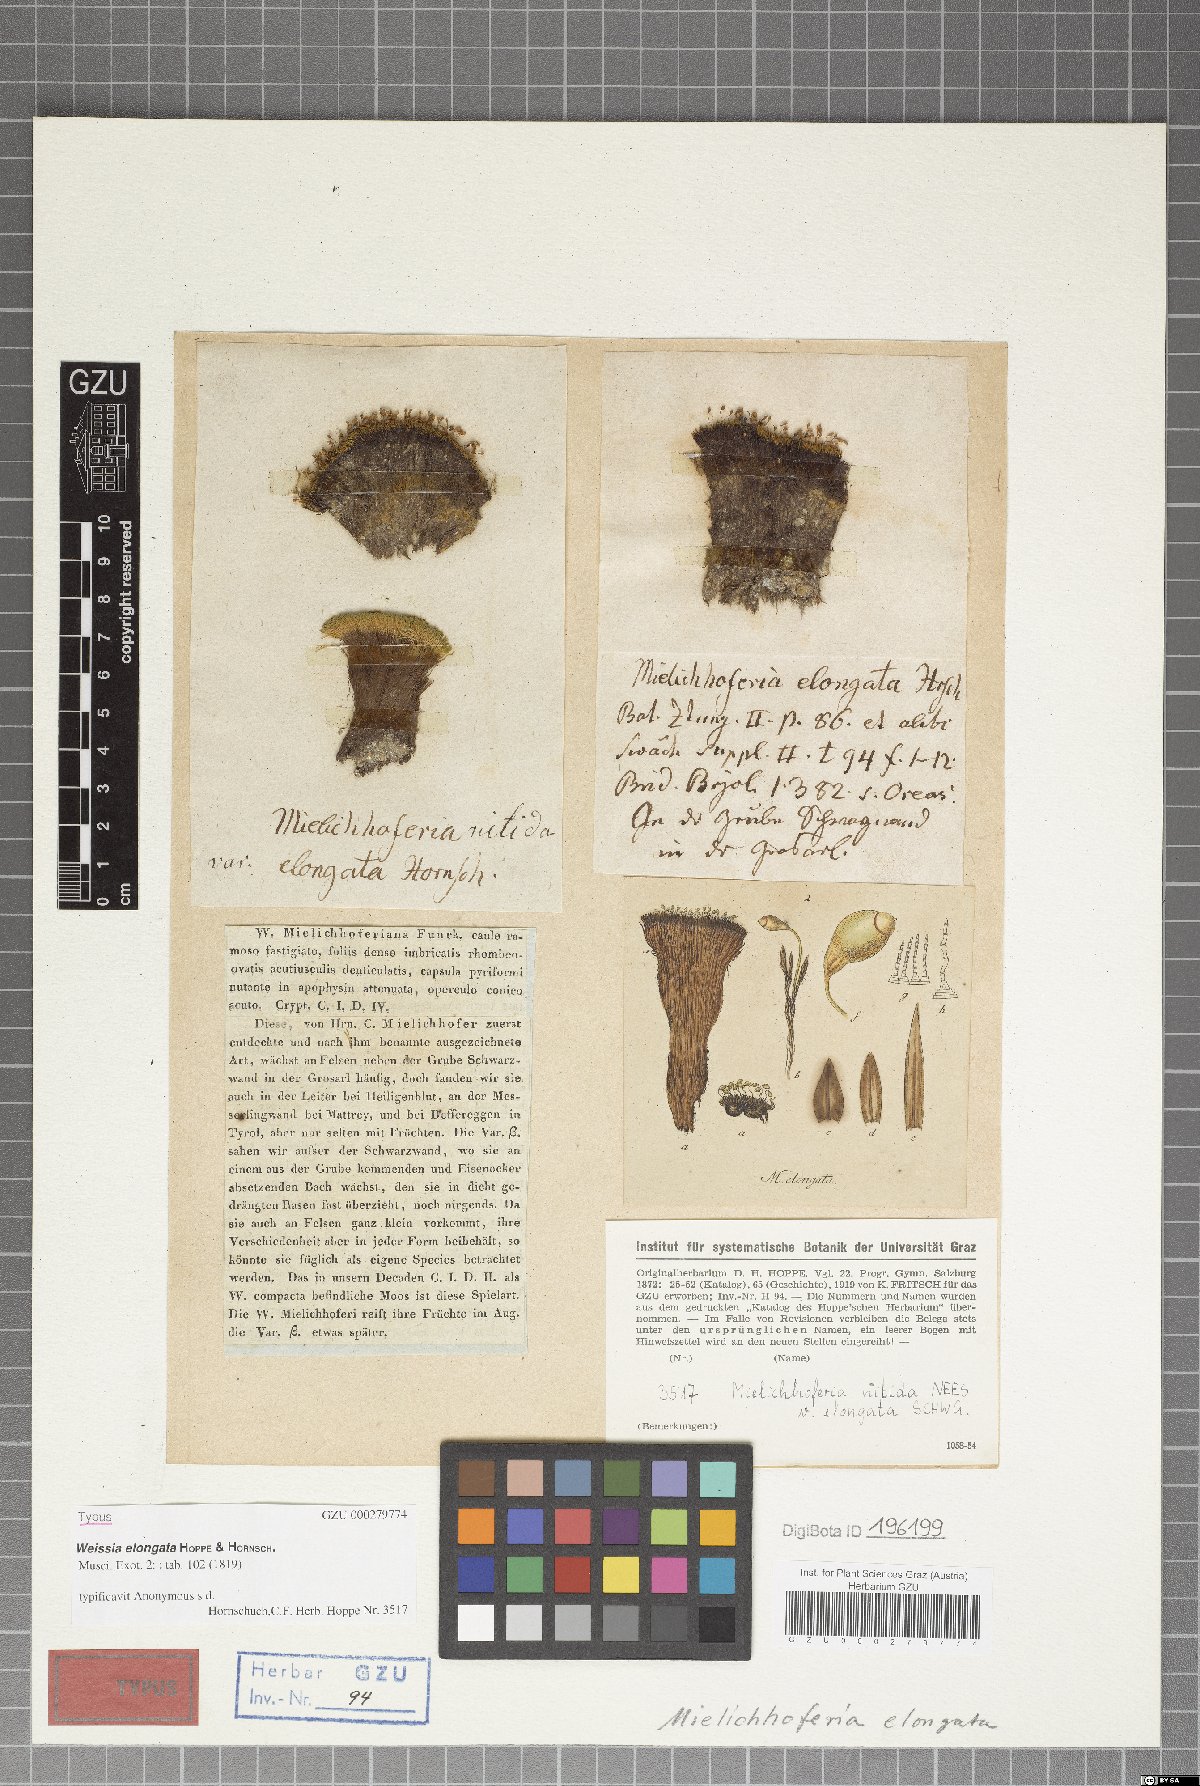 GZU
0 1 2 3 4 5 6 7 8 9 10
cm
copyright reserved
Mielichhoferia nitida
var. elongata Hornsch.
Mielichhoferia elongata Hrnsch
Bot. Ztung. II. p. 86. et alibi
Suppl. II. t 94 f. 1-12.
Brid. Bryol. 1. 382. s. Oreas.
In der Grube Schwarzwand
in der Grosarl.
W. Mielichhoferiana Funck. caule ra-
moso fastigiato, foliis dense imbricatis rhombeo-
ovatis acutiusculis denticulatis, capsula pyriformi
nutante in apophysin attenuata, operculo conico
acuto. Crypt. C. I. D. IV.
Diese, von Hrn. C. Mielichhofer zuerst
entdeckte und nach ihm benannte ausgezeichnete
Art, wächst an Felsen neben der Grube Schwarz-
wand in der Grosarl häufig, doch fanden wir sie
auch in der Leiter bei Heiligenblut, an der Mes-
serlingwand bei Mattrey, und bei Deffereggen in
Tyrol, aber nur selten mit Früchten. Die Var. β.
sahen wir ausser der Schwarzwand, wo sie an
einem aus der Grube kommenden und Eisenocker
absetzenden Bach wächst, den sie in dicht ge-
drängten Rasen fast überzieht, noch nirgends. Da
sie auch an Felsen ganz klein vorkommt, ihre
Verschiedenheit aber in jeder Form beibehält, so
könnte sie füglich als eigene Species betrachtet
werden. Das in unsern Decaden C. I. D. II. als
W. compacta befindliche Moos ist diese Spielart.
Die W. Mielichhoferi reift ihre Früchte im Aug.
die Var. β. etwas später.
2
a a b c d e f g h
M. elongata.
Institut für systematische Botanik der Universität Graz
Originalherbarium D. H. HOPPE. Vgl. 22. Progr. Gymn. Salzburg
1872: 25-62 (Katalog), 65 (Geschichte), 1919 von K. FRITSCH für das
GZU erworben; Inv.-Nr. H 94. — Die Nummern und Namen wurden
aus dem gedruckten „Katalog des Hoppe'schen Herbarium" über-
nommen. — Im Falle von Revisionen verbleiben die Belege stets
unter den ursprünglichen Namen, ein leerer Bogen mit
Hinweiszettel wird an den neuen Stellen eingereiht! —
(Nr.) (Name)
3517 Mielichhoferia nitida NEES
v. elongata SCHWG.
(Bemerkungen:)
1058-54
Typus GZU 000279774
Weissia elongata HOPPE & HORNSCH.
Musci. Exot. 2: : tab. 102 (1819)
typificavit Anonymous s.d.
Hornschuch,C.F. Herb. Hoppe Nr. 3517
TYPUS
Herbar GZU
Inv.-Nr. 94
DigiBota ID 196199
Inst. for Plant Sciences Graz (Austria)
Herbarium GZU
GZU000279774
Mielichhoferia elongata
CC BY SA